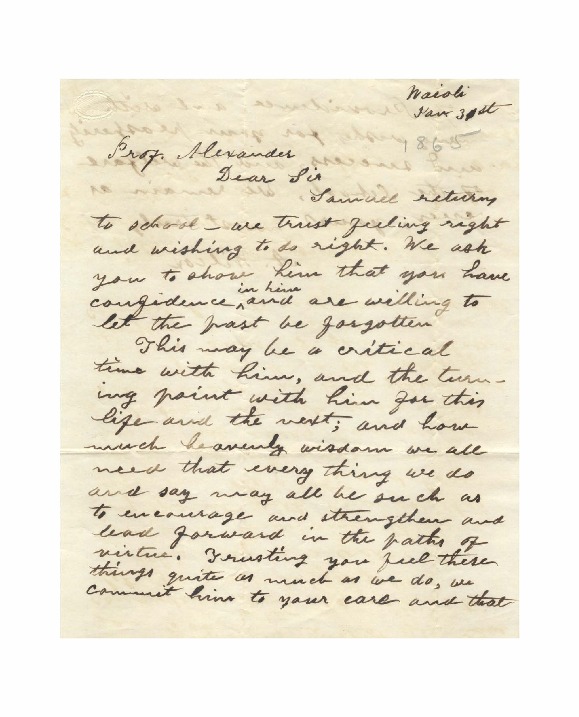 Waioli
Jan 31st
1865
Prof. Alexander
Dear Sir
Samuel returns
to school - we trust feeling right
and wishing to do right. We ask
you to show him that you have
confidence in him and are willing to
let the past be forgotten
This may be a critical
time with him, and the turn-
ing point with him for this
life and the next; and how
much heavenly wisdom we all
need that every thing we do
and say may all be such as
to encourage and strengthen and
lead forward in the paths of
virtue. Trusting you feel these
things quite as much as we do, we
commit him to your care and that